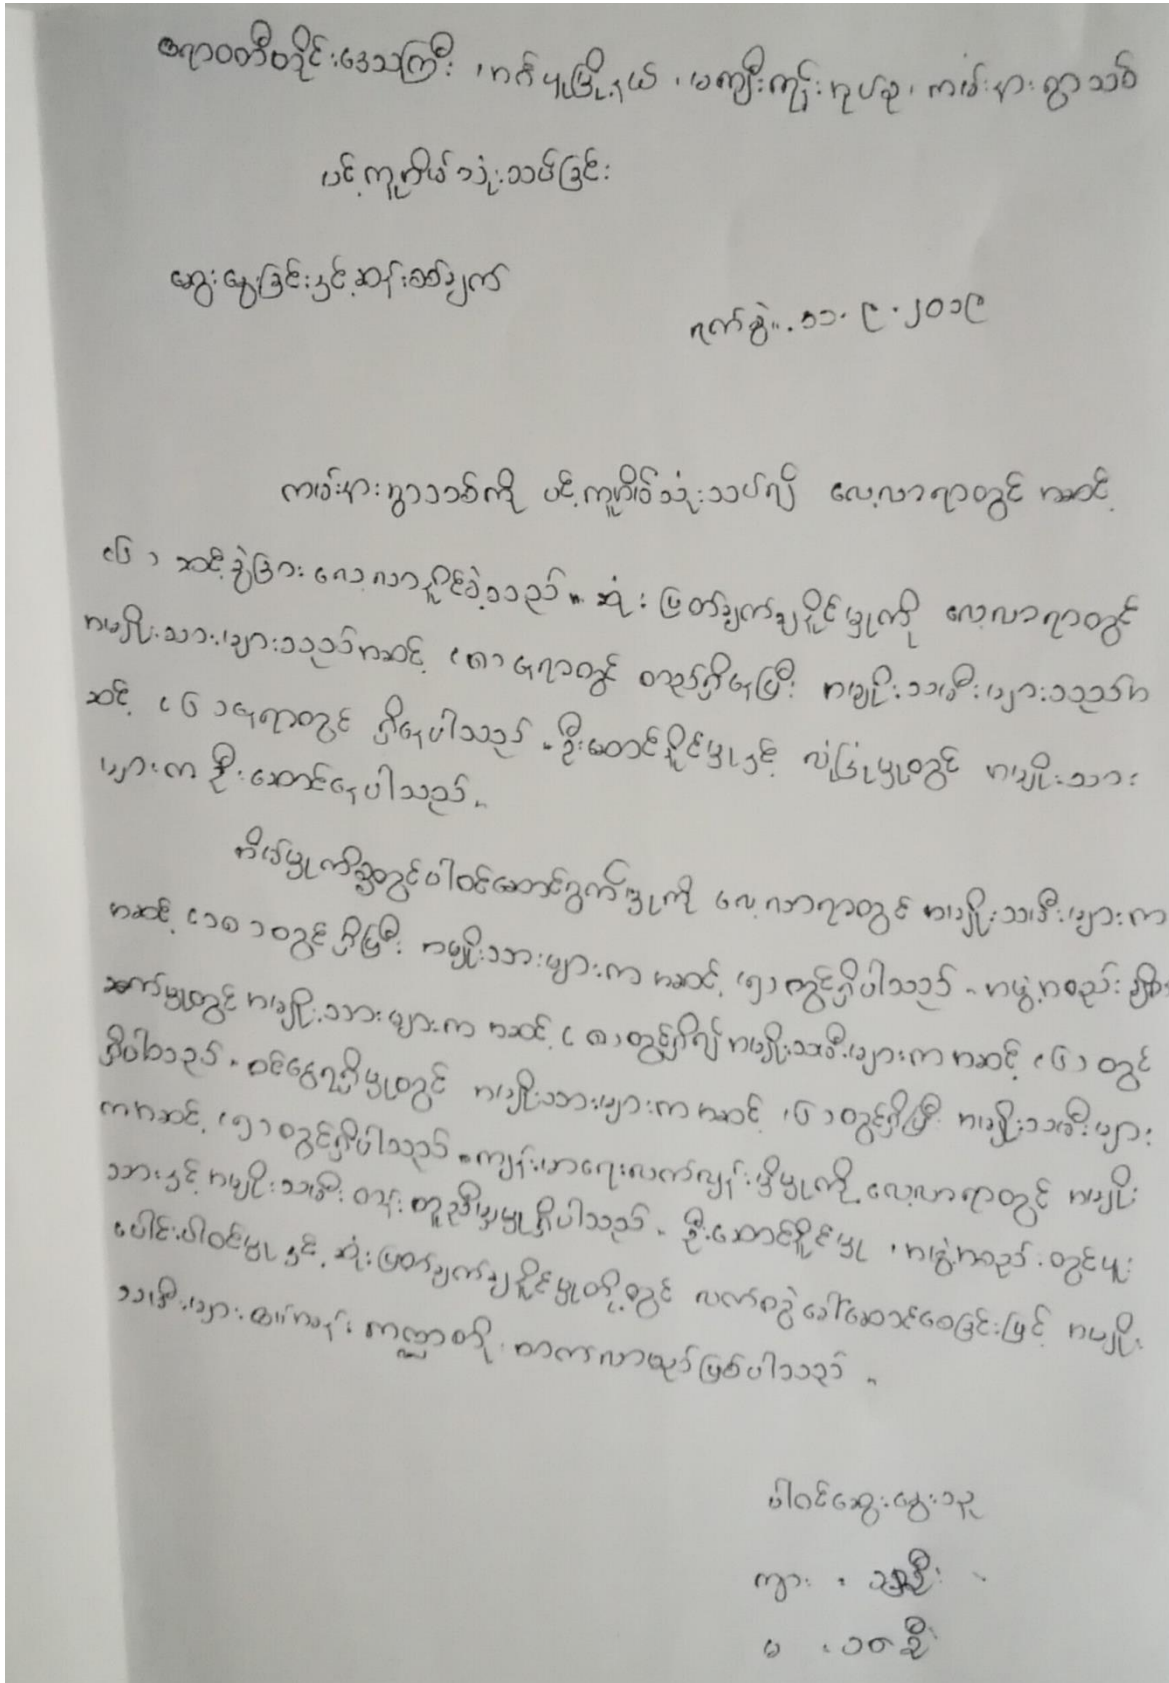 ဧရာဝတီတိုင်းဒေသကြီး ၊ ငပုမြို့နယ် ၊ မကျီးကုန်းအုပ်စု ၊ ကမ်းနားရွာသစ်
ပင့်ကူအိမ်သုံးသပ်ခြင်း
ဆွေးနွေးခြင်းနှင့်ဆန်းစစ်ချက်
ရက်စွဲ ။ . ၁၁ . ၉ . ၂၀၁၉
ကမ်းနားရွာသစ်ကို ပင့်ကူအိမ်သုံးသပ်၍ လေ့လာရာတွင် အဆင့်
( ၆ ) ဆင့်ခွဲခြားလေ့လာနိုင်ခဲ့သည် ။ ဆုံးဖြတ်ချက်ချနိုင်မှုကို လေ့လာရာတွင်
အမျိုးသားများသည်အဆင့် ( ၈ ) နေရာတွင် တည်ရှိနေပြီး အမျိုးသမီးများသည်အ
ဆင့် ( ၆ ) နေရာတွင် ရှိနေပါသည် ။ ဦးဆောင်နိုင်မှုနှင့် လုံခြုံမှုတွင် အမျိုးသား
များက ဦးဆောင်နေပါသည် ။
အိမ်မှုကိစ္စတွင်ပါဝင်ဆောင်ရွက်မှုကို လေ့လာရာတွင် အမျိုးသမီးများက
အဆင့် ( ၁၀ ) တွင်ရှိပြီး အမျိုးသားများက အဆင့် ( ၅ ) တွင်ရှိပါသည် ။ အဖွဲ့အစည်း
ဆက်မှုတွင် အမျိုးသားများက အဆင့် ( ၈ ) တွင်ရှိ၍ အမျိုးသမီးများက အဆင့် ( ၆ ) တွင်
ရှိပါသည် ။ ဝင်ငွေရရှိမှုတွင် အမျိုးသားများက အဆင့် ( ၆ ) တွင်ရှိပြီး အမျိုးသမီးများ
ကအဆင့် ( ၅ ) တွင်ရှိပါသည် ။ ကျန်းမာရေးလက်လှမ်းမှီမှုကို လေ့လာရာတွင် အမျိုး
သားနှင့် အမျိုးသမီး တန်းတူညီမျှမှုရှိပါသည် ။ ဦးဆောင်နိုင်မှု ၊ အဖွဲ့အစည်းတွင်ပူး
ပေါင်းပါဝင်မှုနှင့် ဆုံးဖြတ်ချက်ချနိုင်မှုတို့တွင် လက်တွဲခေါ်ဆောင်စေခြင်းဖြင့် အမျိုး
သမီးများ၏အခန်းကဏ္ဍတို့ တက်လာမည်ဖြစ်ပါသည် ။
ပါဝင်ဆွေးနွေးသူ
ကျား -
မ - ၁၈ ဦး